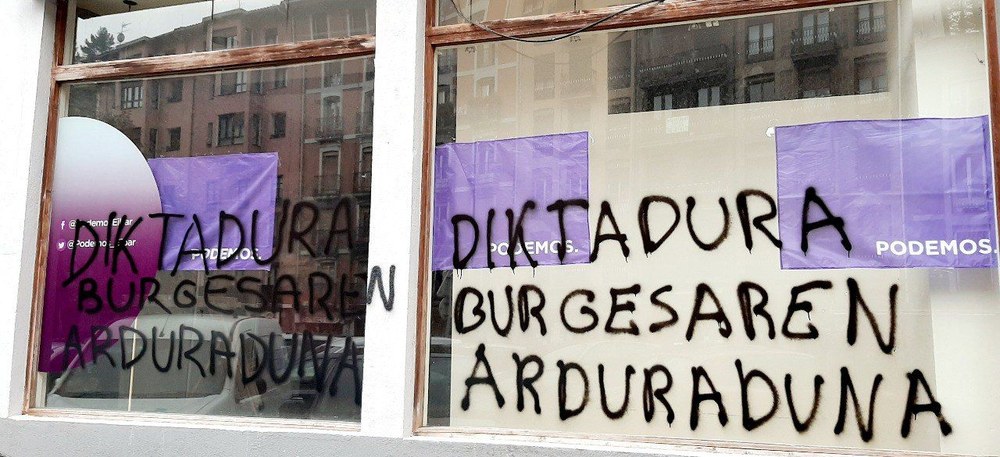 @Podemos_Eibar
@Podemos_Eibar
PODEMOS.
DIKTADURA
BURGESAREN
ARDURADUNA
PODEMOS.
PODEMOS.
DIKTADURA
BURGESAREN
ARDURADUNA